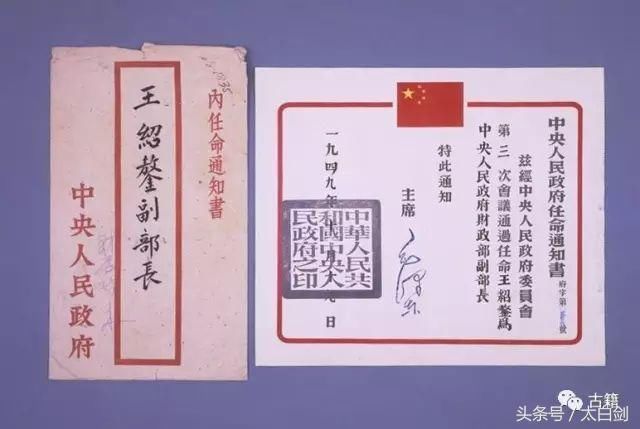 內任命通知書
王紹鏊副部長
中央人民政府
中央人民政府任命通知書
府字第 號
茲經中央人民政府委員會
第三次會議通過任命王紹鏊爲
中央人民政府財政部副部長
特此通知
主席
毛澤東
一九四九年十月十九日
中華人民共
和國中央人
民政府之印
古籍
头条号 / 太白剑